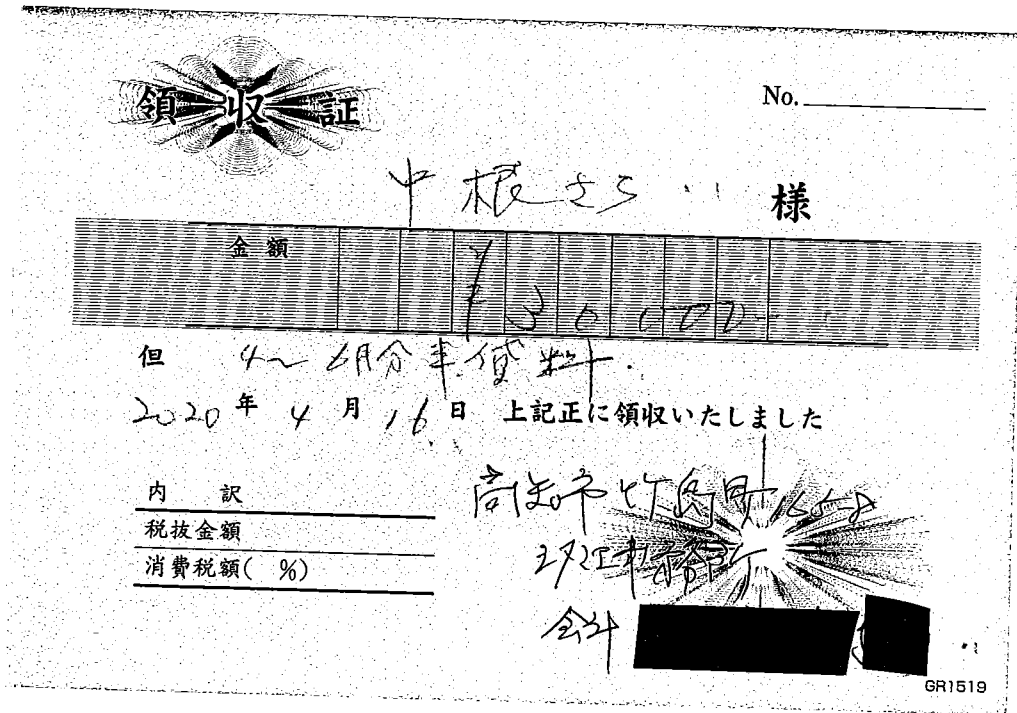 領収証
No.
中根さち 様
金額 ¥30000-
但 4~6月分 車賃料.
2020年 4月 16日 上記正に領収いたしました
内 訳
税抜金額
消費税額( %)
高知市竹島町
会計
GR1519